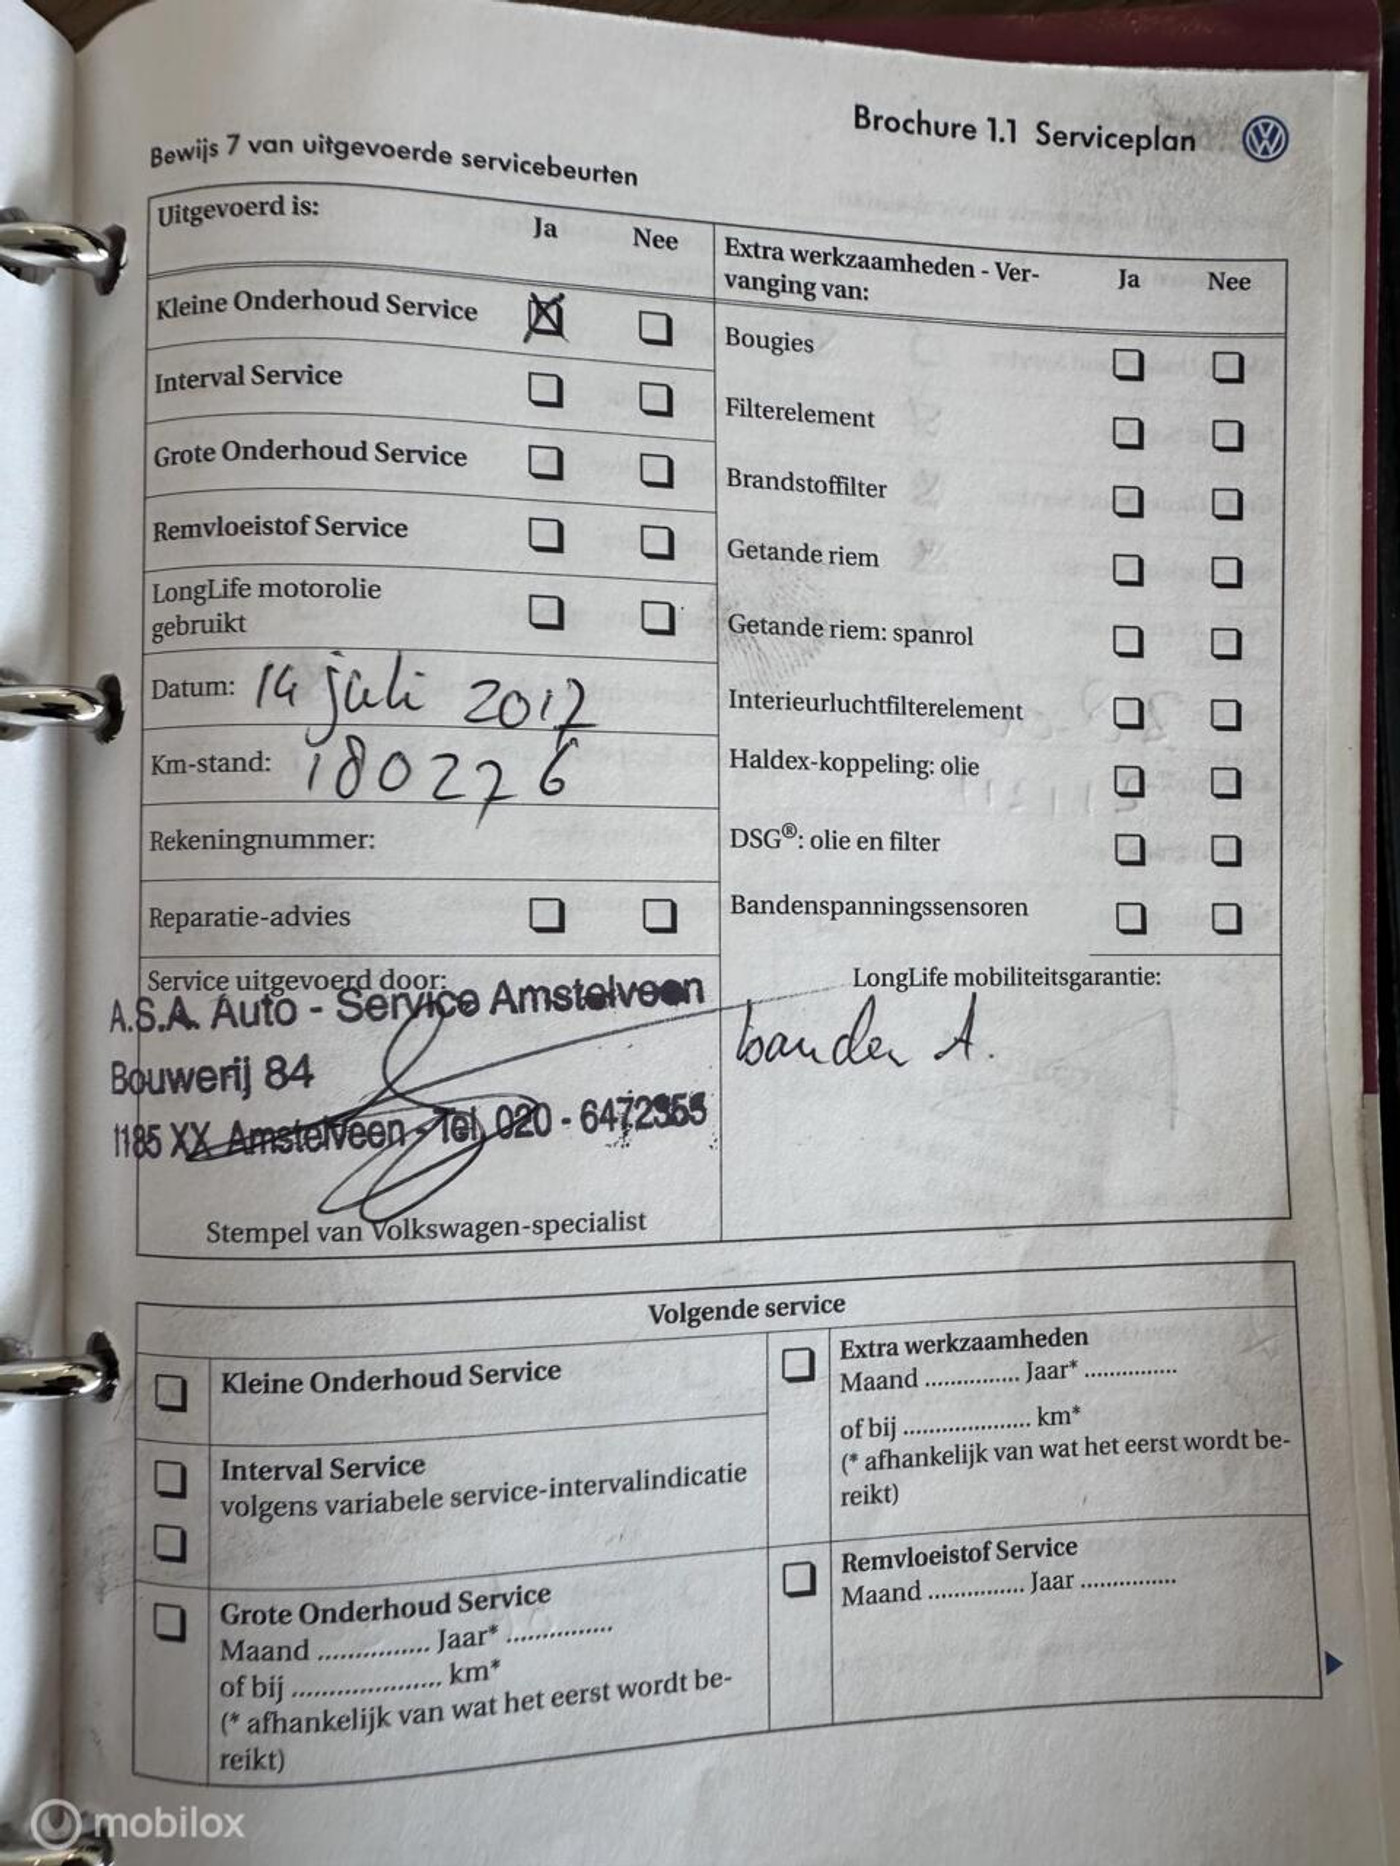 Brochure 1.1 Serviceplan
Bewijs 7 van uitgevoerde servicebeurten
Uitgevoerd is:
Ja
Nee
Kleine Onderhoud Service
Interval Service
Grote Onderhoud Service
Remvloeistof Service
LongLife motorolie
gebruikt
Datum: 14 juli 2012
Km-stand: 180276
Rekeningnummer:
Reparatie-advies
Service uitgevoerd door:
A.S.A. Auto - Service Amstelveen
Bouwerij 84
1185 XX Amstelveen - Tel. 020 -
Stempel van Volkswagen-specialist
Extra werkzaamheden - Ver-
vanging van:
Ja
Nee
Bougies
Filterelement
Brandstoffilter
Getande riem
Getande riem: spanrol
Interieurluchtfilterelement
Haldex-koppeling: olie
DSG®: olie en filter
Bandenspanningssensoren
LongLife mobiliteitsgarantie:
Volgende service
Kleine Onderhoud Service
Interval Service
volgens variabele service-intervalindicatie
Grote Onderhoud Service
Maand ............... Jaar* ...............
of bij ..................... km*
(* afhankelijk van wat het eerst wordt be-
reikt)
Extra werkzaamheden
Maand ............... Jaar* ...............
of bij .................... km*
(* afhankelijk van wat het eerst wordt be-
reikt)
Remvloeistof Service
Maand ............... Jaar ...............
mobilox